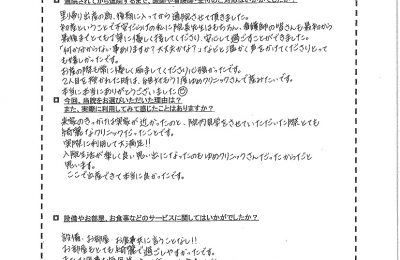 里帰り出産の為、後期に入ってから通院させて頂きました。
初産ということで不安だらけの私に院長先生はもちろん、看護師の皆さんも最初から
最後までとてもて寧に優しく接してくださり、安心して過ごすことができました。
"何か分からない事ありますか？大丈夫かな？"などと温かく声をかけてくださりとって
も嬉しかったです。
お産の際も常に優しく励ましてくださり心強かったです。
2人目を授かれた時は、ゆめクリニックさんで産みたいです。
本当に本当にありがとうございました
■ 今回、当院をお選びいただいた理由は？
また、実際に利用してみて感じたことはありますか？
来院のきっかけは実家が近かったのと、院内見学をさせていただいた際とても
綺麗なクリニックだったことです。
実際に利用して大満足!!
入院生活が楽しく良い思い出になったのもゆめクリニックさんだったからだと
思います。
ここで出産できて本当に良かったです。
■ 設備やお部屋、お食事などのサービスに関してはいかがでしたか？
設備・お部屋・お食事共に言うことなし!!
お部屋もとても綺麗で過ごしやすかったです。